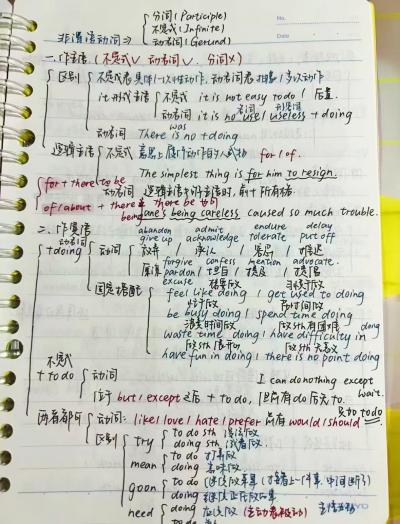 分词(Participle)
No.
非谓语动词⇒ 不定式(Infinite)
动名词(Gerund)
Date
一.作主语(不定式∨ 动名词∨. 分词×)
区别 不定式表具体/一次性动作,动名词表抽象/多次动作
it形式主语 不定式 it is not easy to do / 后置.
名词 形容词
动名词 it is no use / useless + doing
was
动名词 There is no + doing
逻辑主语 不定式
for / of.
The simplest thing is for him to resign.
for + there to be
动名词 逻辑主语
of / about + there being
Jane's being careless caused so much trouble.
二.作宾语
动名词
abandon admit endure delay
+doing 动词 give up acknowledge tolerate put off
放弃 / 承认 / 容忍 / 推迟
forgive confess mention advocate.
pardon / 坦白 / 提及 / 提倡
excuse
固定搭配 feel like doing / get used to doing
忙于做 花时间做
be busy doing / spend time doing
浪费时间做 做sth有困难
waste time doing / have difficulty in doing
have fun in doing / there is no point doing
不定式
+ to do 动词
I can do nothing except wait.
位于 but / except 之后 + to do, 但前有do后无to.
两者都可 动词: like / love / hate / prefer 前有 would / should 只 to do
区别 try to do sth 设法做
doing sth 试着做
mean to do 打算做
doing 意味做
go on to do
doing 继续
need doing
to do